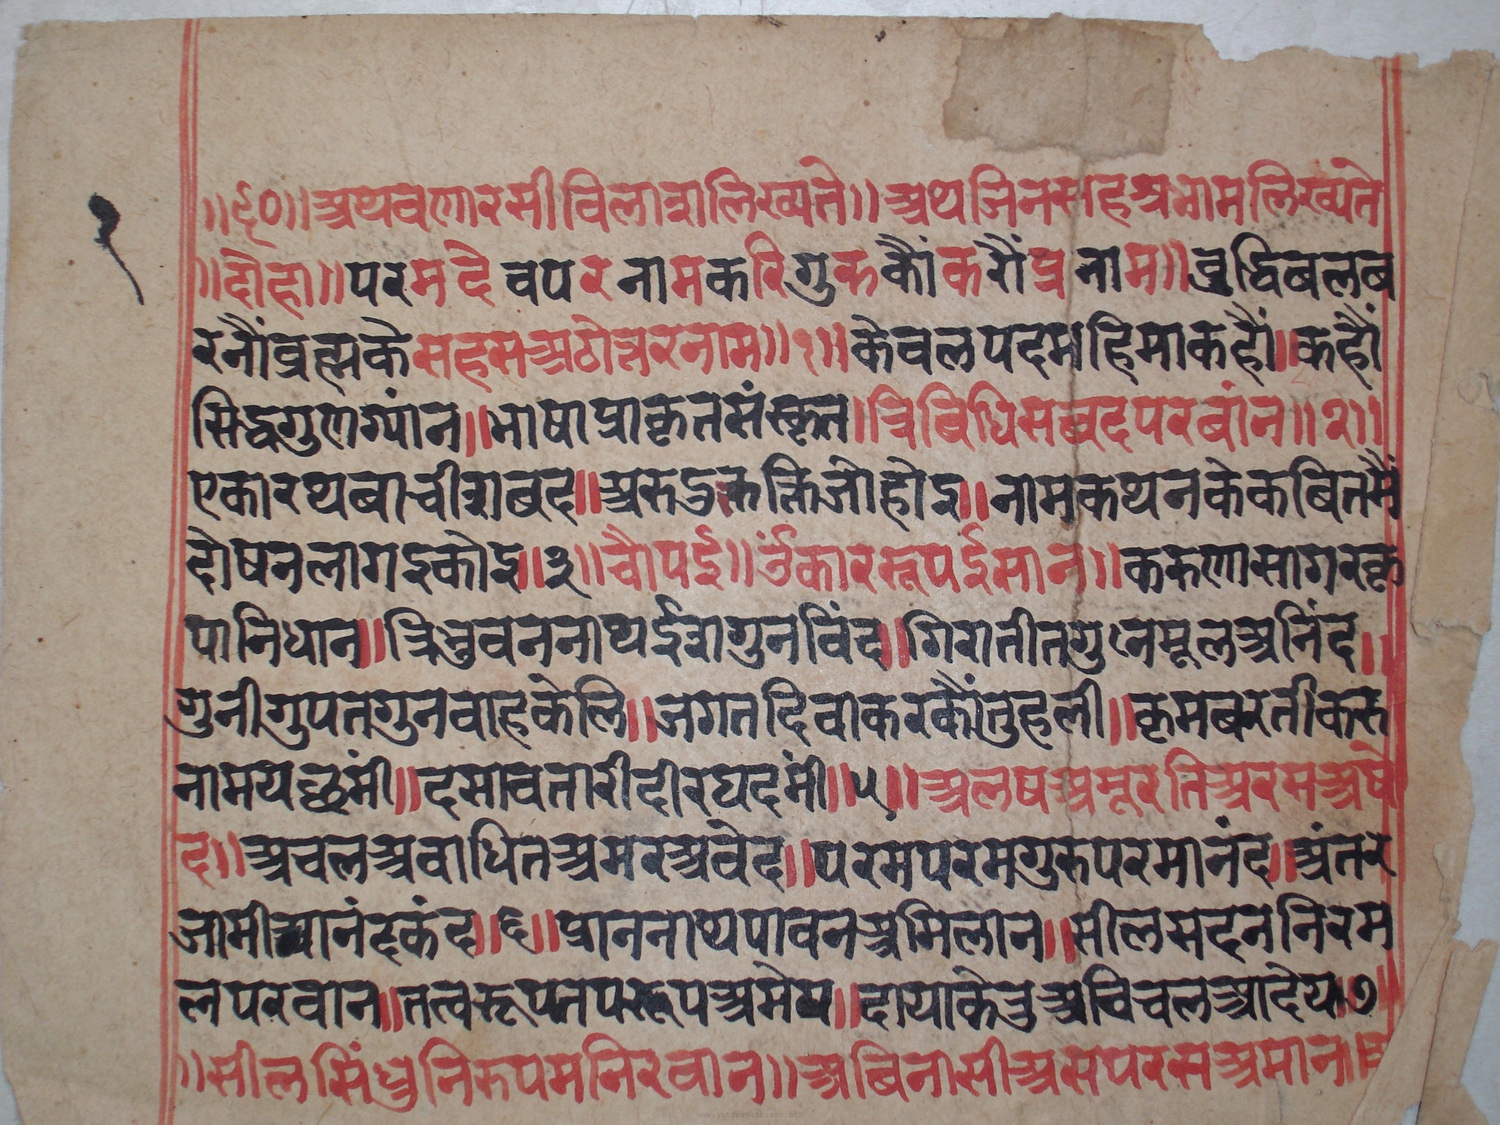 १
॥६०॥अथवणारसीविलाशलिख्यते॥अथजिनसहश्रनामलिख्यते
॥दोहा॥परमदेवपरनामकरिगुरुकौंकरौंप्रनाम॥बुद्धिबलब
रनौंब्रह्मकेसहसअठोत्तरनाम॥१॥केवलपदमहिमाकहौं॥कहौं
सिद्धगुणग्यांन॥भाषाप्राकृतसंस्कृत।त्रिबिधिसबदपरबांन॥२॥
एकारथबाचीशबद॥अरुदुरुक्तिजोहोइ॥नामकथनकेकबितमैं
दोषनलागइकोइ॥३॥चौपई॥उंकारसूपईसान॥करुणासागरकृ
पानिधान॥त्रिभुवननाथईशगुनविंद॥गिरातीतगुनमूलअनिंद॥
गुनीगुपतगुनवाहकेलि॥जगतदिवाकरकौंतुहली॥कृमबरतीकरु
नामयछमी॥दसावतारीदीरघदमी॥५॥अलषअमूरतिअरसअषे
द॥अचलअवाधितअमरअवेद॥परमपरमगुरुपरमानंद॥अंतर
जामीआनंदकंद॥६॥प्राननाथपावनअमिलान॥सीलसदननिरम
लपरवान॥तत्वरूपतपरूपअमेय॥दायाकेतुअविचलआदेय॥७
॥सीलसिंधुनिरुपमनिरवान॥अबिनासीअसपरसअमान॥